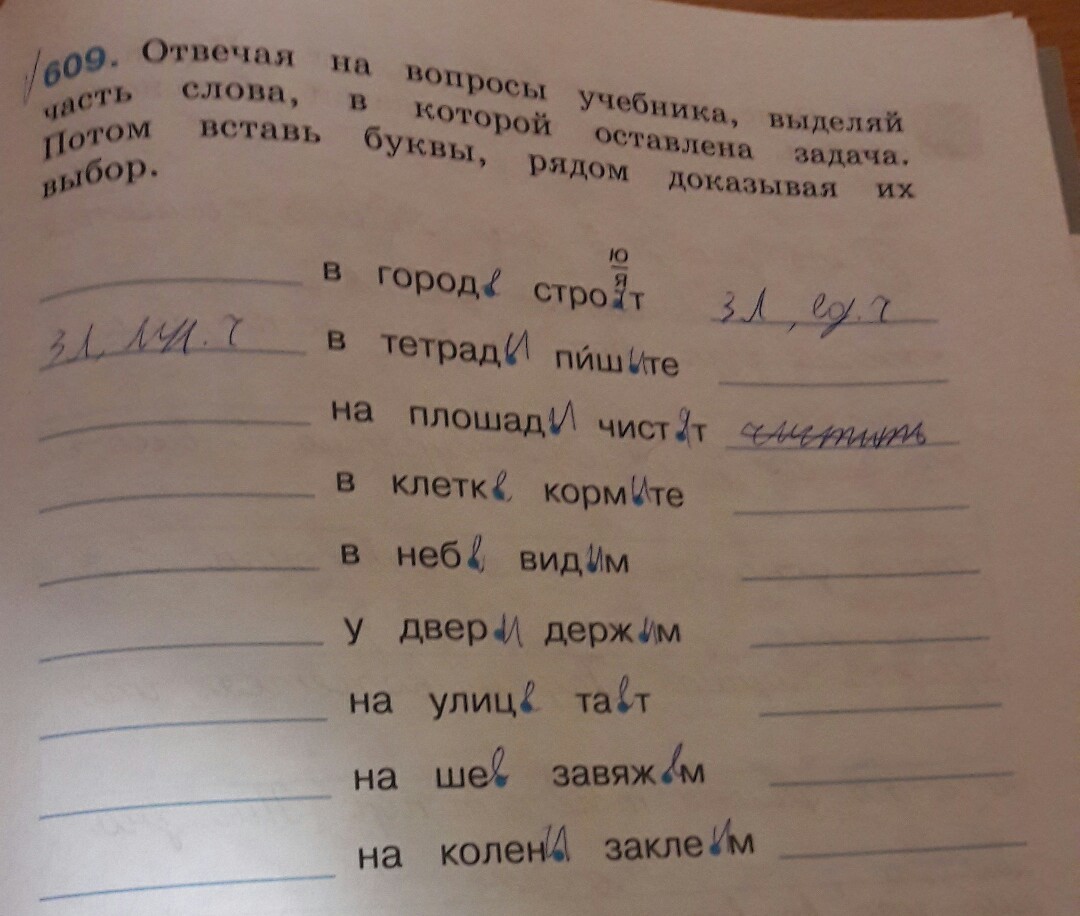 609. Отвечая на вопросы учебника, выделяй
часть слова, в которой оставлена задача.
Потом вставь буквы, рядом доказывая их
выбор.
ю
я
в городе строят 3 л, ед. ч
3 л, мн. ч в тетради пи́шите
на площади чистят чистить
в клетке кормите
в небе видим
у двери держим
на улице тает
на шее завяжем
на колени заклеим